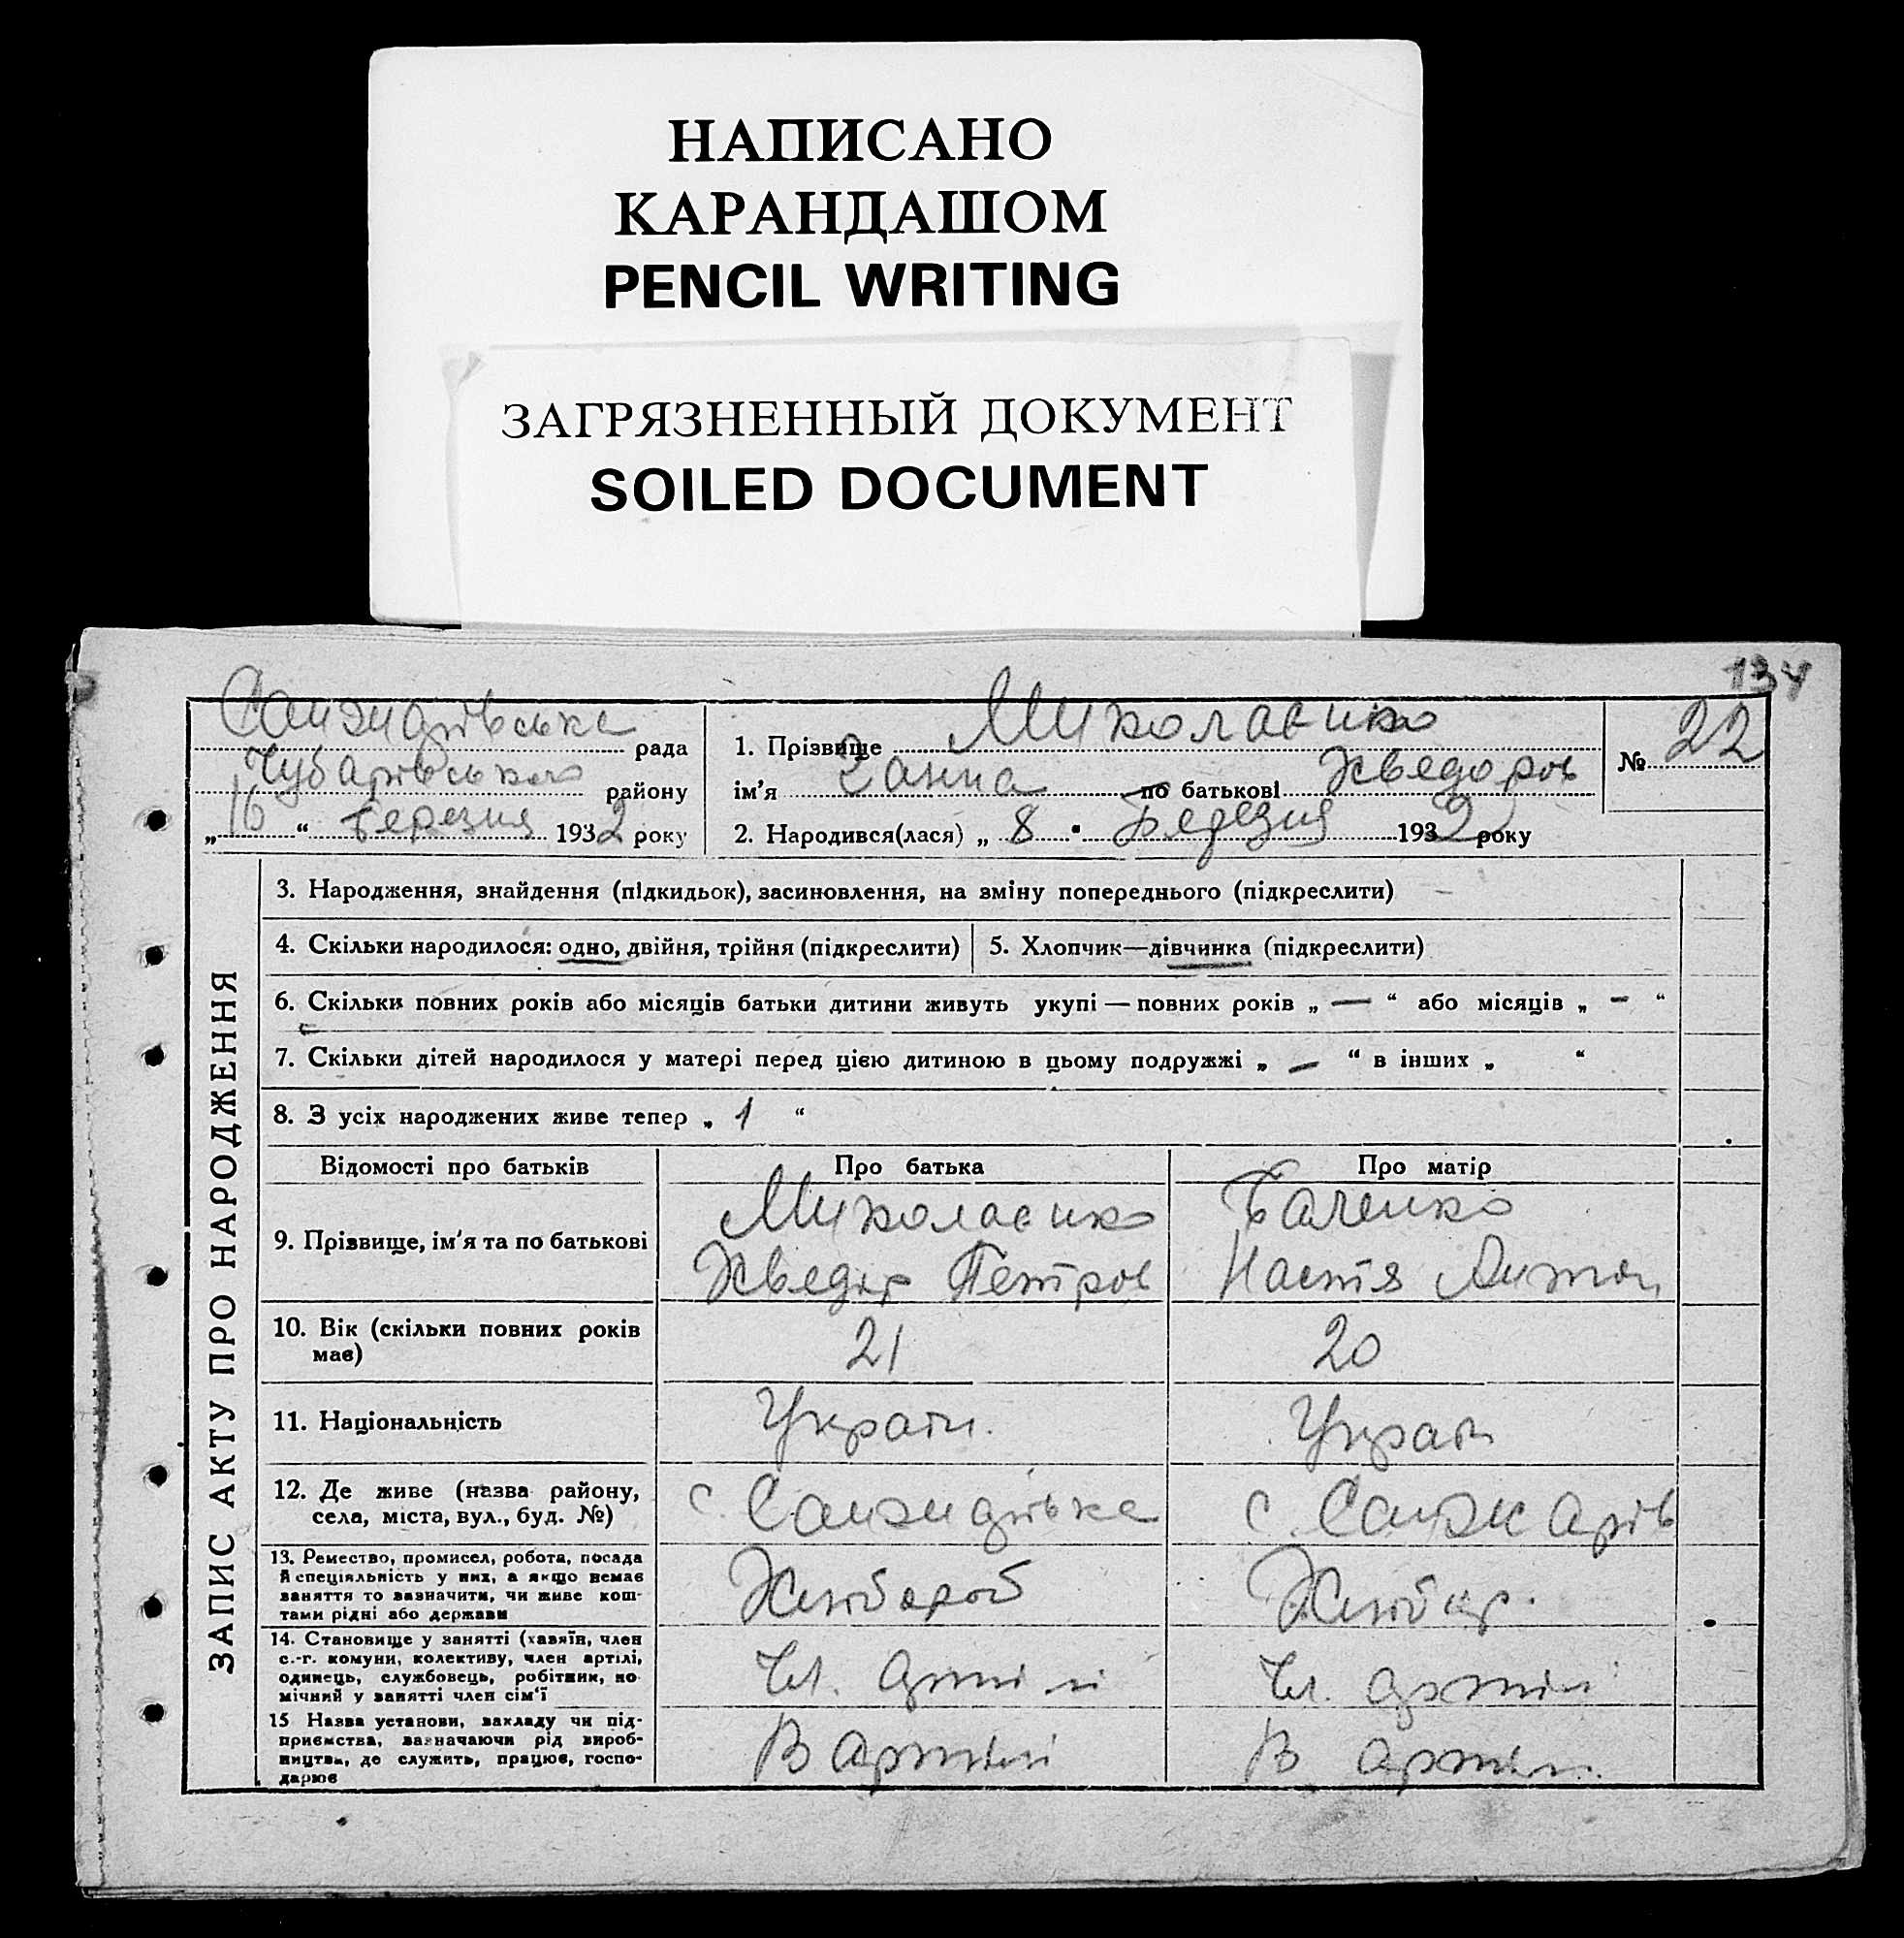 НАПИСАНО
КАРАНДАШОМ
PENCIL WRITING
ЗАГРЯЗНЕННЫЙ ДОКУМЕНТ
SOILED DOCUMENT
134
рада
Чубарівського району
„16“ березня 1932 року
1. Прізвище Миколаєнко
ім'я Ганна по батькові Хведоров
2. Народився(лася) „8“ Березня 1932 року
№ 22
ЗАПИС АКТУ ПРО НАРОДЖЕННЯ
3. Народження, знайдення (підкидьок), засиновлення, на зміну попереднього (підкреслити)
4. Скільки народилося: одно, двійня, трійня (підкреслити)
5. Хлопчик—дівчинка (підкреслити)
6. Скільки повних років або місяців батьки дитини живуть укупі — повних років „ — “ або місяців „ - “
7. Скільки дітей народилося у матері перед цією дитиною в цьому подружжі „ — “ в інших „ “
8. З усіх народжених живе тепер „ 1 “
Відомості про батьків Про батька Про матір
9. Прізвище, ім'я та по батькові
Миколаєнко
Хведір Петров
Настя Антон
10. Вік (скільки повних років
має)
21
20
11. Національність
Україн.
Україн
12. Де живе (назва району,
села, міста, вул., буд. №)
с.
с.
13. Ремество, промисел, робота, посада
й спеціяльність у них, а якщо немає
заняття то зазначити, чи живе кош-
тами рідні або держави
Хлібороб
Хлібор.
14. Становище у занятті (хазяїн, член
с.-г. комуни, колективу, член артілі,
одинець, службовець, робітник, по-
мічний у занятті член сім'ї
Чл. артілі
Чл. артілі
15 Назва установи, закладу чи під-
приємства, зазначаючи рід вироб-
ництва, де служить, працює, госпо-
дарює
В артілі
В артілі